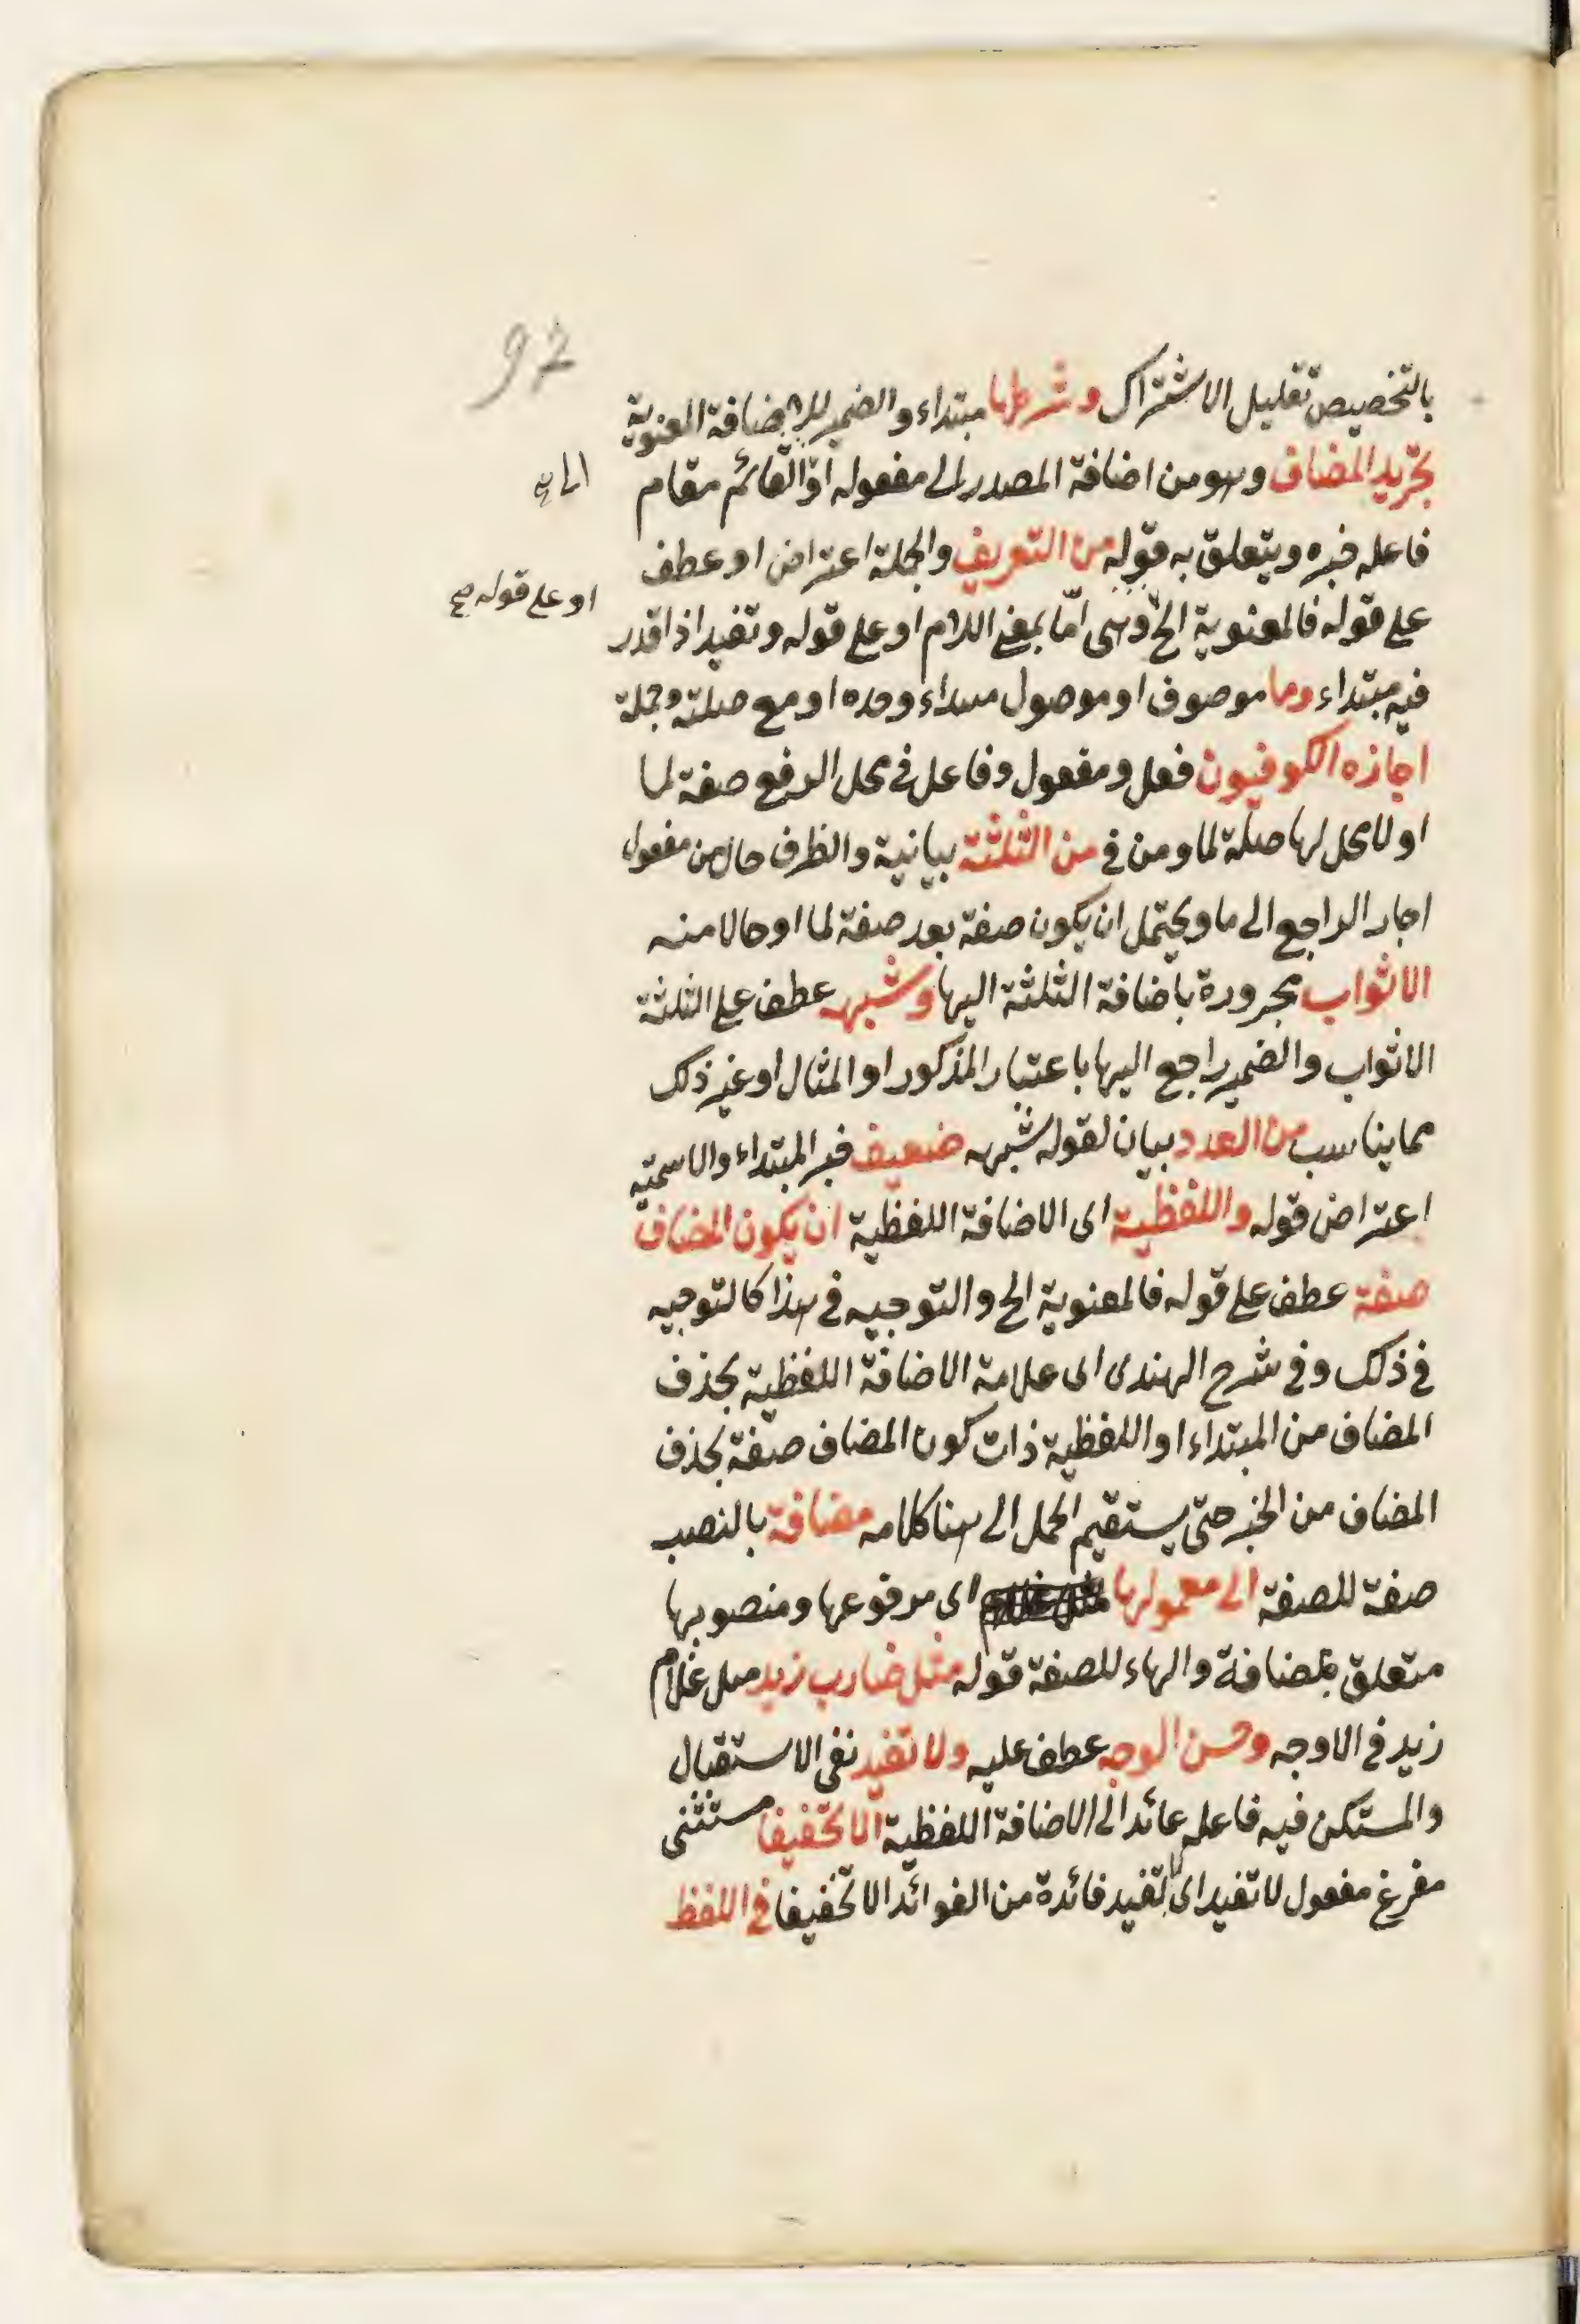 92
بالتخصيص تقليل الاشتراك وشرطها مبتداء والضمير للاضافة المعنوية
تجريد المضاف وهو من اضافة المصدر الى مفعوله او القائم مقام
فاعله خبره ويتعلق به قوله من التعريف والجملة اعتراض او عطف
او على قوله صح
على قوله فالمعنوية الخ وهي امّا بمعنى اللام او على قوله وتفيد اذا قدر
فيه مبتداء وما موصوف او موصول مبتداء وحده او مع صلته وجملة
اجازه الكوفيون فعل ومفعول وفاعل في محل الرفع صفة لما
او لا محل لها صلة لما ومن في من الثلثة بيانية والظرف حال من مفعول
اجاز الراجع الى ما ويحتمل ان يكون صفة بعد صفة لما او حالا منه
الاثواب مجرورة باضافة الثلثة اليها وشبهه عطف على الثلثة
الاثواب والضمير راجع اليها باعتبار المذكور او المثال او غير ذلك
مما يناسب من العدد بيان لقوله شبهه ضعيف خبر المبتداء والاسمية
اعتراض قوله واللفظية اى الاضافة اللفظية ان يكون المضاف
صفة عطف على قوله فالمعنوية الخ والتوجيه في هذا كالتوجيه
في ذلك وفي شرح الهندى اى علامة الاضافة اللفظية بحذف
المضاف من المبتداء او اللفظية ذات كون المضاف صفة بحذف
المضاف من الخبر حتّى يستقيم الحمل الى هنا كلامه مضافة بالنصب
صفة للصفة الى معمولها اى مرفوعها ومنصوبها
متعلق بمضافة والهاء للصفة قوله مثل ضارب زيد مثل غلام
زيد في الاوجه وحسن الوجه عطف عليه ولا تفيد نفى الاستقبال
والمستكن فيه فاعله عائد الى الاضافة اللفظية الّا تخفيفا مستثنى
مفرغ مفعول لا تفيد اى لا تفيد فائدة من الفوائد الا تخفيفا في اللفظ